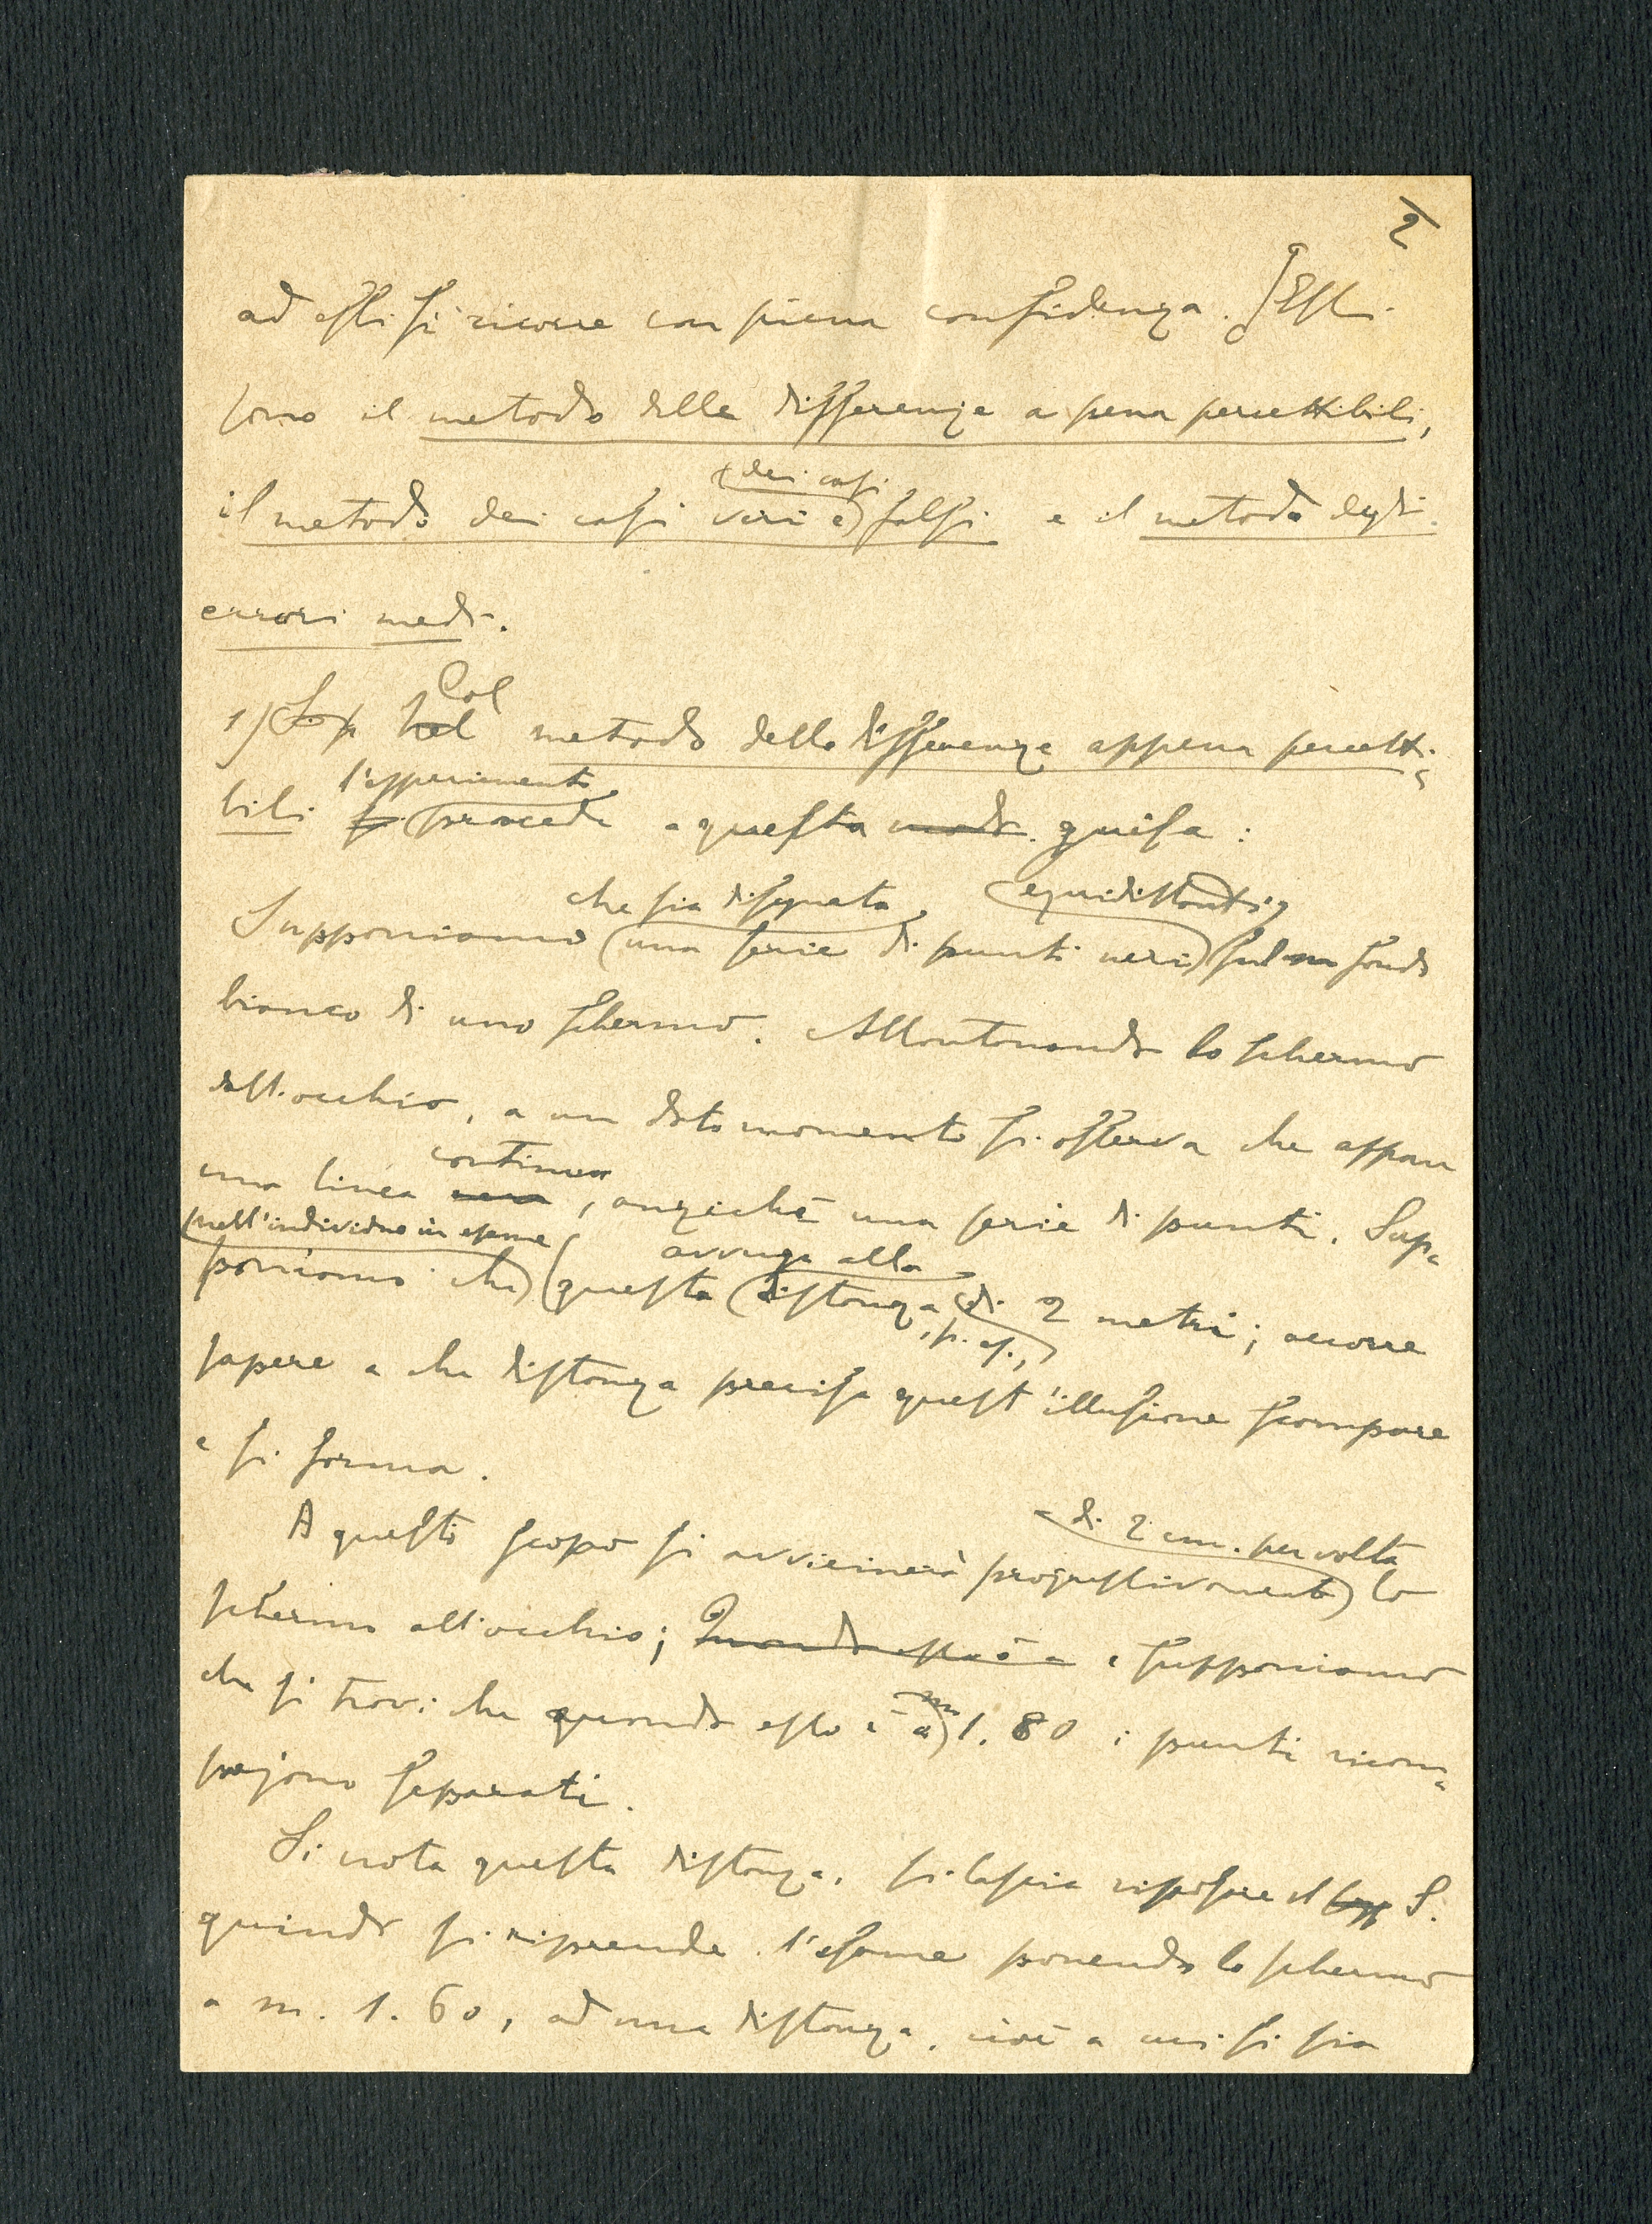 2
ad essi si ricorre con piena confidenza. Essi
sono il metodo delle differenze a pena percettibili,
dei casi
il metodo dei casi veri e falsi e il metodo degli
errori medi.
Col
1) Nel metodo delle differenze appena percetti-
l'esperimento
bili si procede a questa modo guisa:
che sia disegnata equidistanti
Supponiamo una serie di punti neri sul fondo
bianco di uno schermo. Allontanando lo schermo
dall'occhio, a un dato momento si osserva che appare
continua
una linea nera, anzichè una serie di punti. Sup-
nell'individuo in esame avvenga alla
poniamo che questa distanza di 2 metri; occorre
, p. es.,
sapere a che distanza precisa quest'illusione scompare
e si forma.
di 2 cm. per volta
A questo scopo si avvicinerà progressivamente lo
schermo all'occhio; Quando esso è a e supponiamo
m
che si trovi che quando esso è a 1.80 i punti ricom-
pajono separati.
Si nota questa distanza, si lascia riposare il S.
quindi si riprende l'esame ponendo lo schermo
a m. 1.60, ad una distanza, cioè a cui si sia